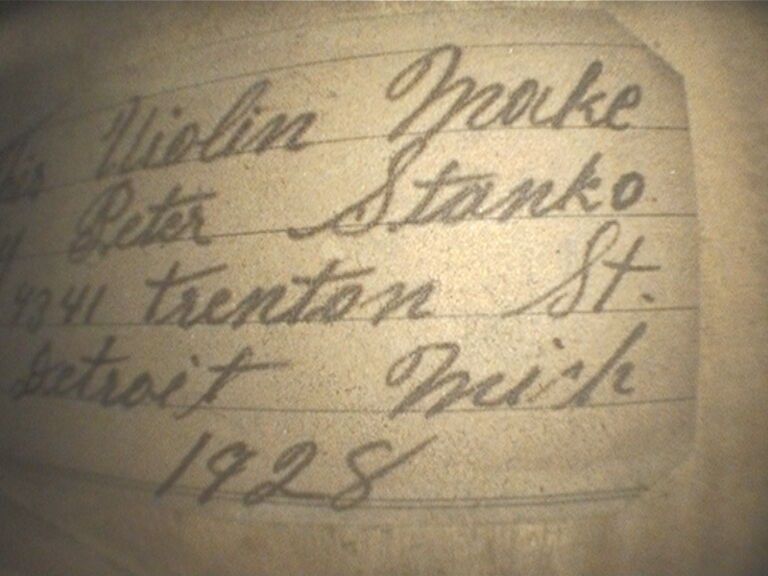 This Violin Make
by Peter Stanko
4341 trenton St.
Detroit Mich
1928